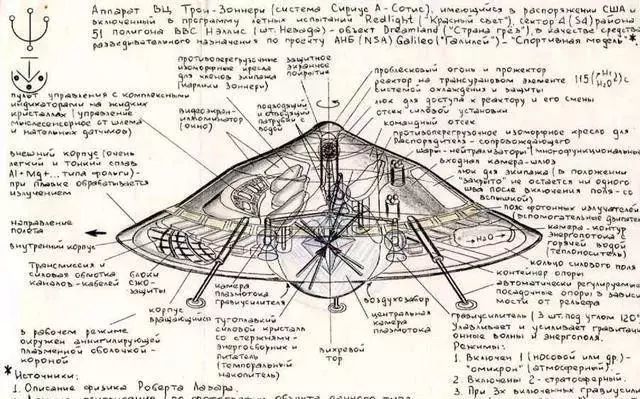 Аппарат ВЦ Трон-Зоннери (система Сириус А - Сотис), имеющийся в распоряжении США и
включенный в программу летных испытаний Redlight ("Красный свет"), сектор 4 (S4) района
51 полигона ВВС Нэллис (шт. Невада) - объект Dreamland ("Страна грёз"), в качестве средства
разведывательного назначения по проекту АНБ (NSA) Galileo ("Галилей") - "Спортивная модель" *
противоперегрузочные
изоморфные кресла
для членов экипажа
(карлики Зоннери)
защитное
экранное
покрытие
проблесковый огонь и прожектор
реактор на трансурановом элементе 115
системой охлаждения и защиты
люк для доступа к реактору и его смены
отсек силовой установки
командный отсек
противоперегрузочное изоморфное кресло для
распорядителя - сопровождающего
шары-нейтрализаторы (многофункциональные
входная камера-шлюз
люк для экипажа (в положении
"закрыто" не остается ни одного
шва после включения поля - со
вспышкой)
пояс фотонных излучателей
(вспомогательные двигатели
камера-контур
энергопотока с
горячей водой
(теплоноситель)
пульт управления с комплексными
индикаторами на жидких
кристаллах (управление
мыслесенсорное от шлема
и напольных датчиков)
видеоэкран-
иллюминатор
(окно)
подходящий
и отводящий
патрубки с
водой
внешний корпус (очень
легкий и тонкий сплав
Al+Mg+... типа фольги) -
при плавке обрабатывается
излучением
направление
полёта
внутренний корпус
→H₂O→
Трансмиссия и
силовая обмотка
каналов-кабелей
блоки
СЖО-
защиты
корпус
вращающийся
камера
плазмотока
гравиусилителя
воздухозабор
центральная
камера
плазмотока
кольцо силового поля
контейнер опоры
автоматически регулируемые
посадочные опоры в зависи-
мости от рельефа
в рабочем режиме
окружен аннигилирующей
плазменной оболочкой -
короной
тугоплавкий
силовой кристалл
со стержнями-
энергосборник и
питатель
(темпоральный
накопитель)
вихревой
тор
гравиусилитель (3 шт. под углом 120°
Улавливает и усиливает гравитаци
онные волны и энергополя.
Режимы:
1. Включен 1 (носовой или др.) -
"омикрон" (атмосферный).
2. Включены 2 - стратосферный.
3. При 3х включенных гравиусили
* Источники:
1. Описание физика Роберта Лазара.